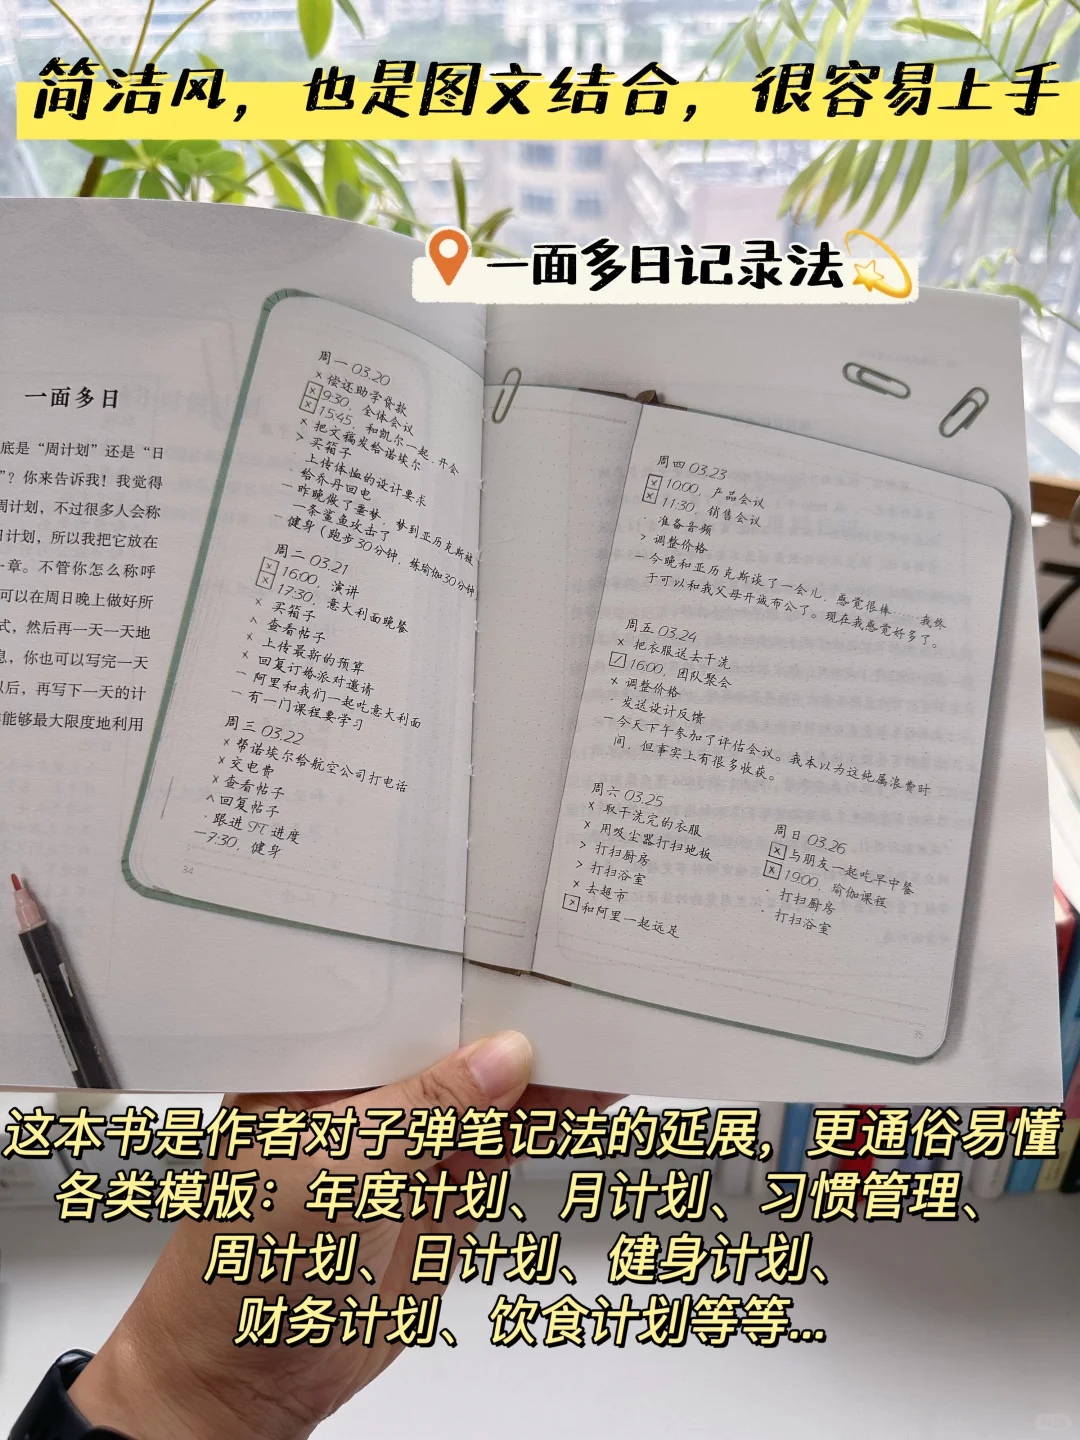 简洁风，也是图文结合，很容易上手
一面多日记录法
一面多日
底是“周计划”还是“日
”？你来告诉我！我觉得
周计划，不过很多人会称
日计划，所以我把它放在
一章。不管你怎么称呼
可以在周日晚上做好所
式，然后再一天一天地
息，你也可以写完一天
以后，再写下一天的计
能够最大限度地利用
周一 03.20
× 偿还助学贷款
☒ 9:30，全体会议
☒ 15:45，和凯尔一起开会
× 把文稿发给诺埃尔
> 买箱子
· 上传体恤的设计要求
· 给乔丹回电
— 昨晚做了噩梦，梦到亚历克斯被
一条鲨鱼攻击了
— 健身（跑步30分钟，练瑜伽30分钟）
周二 03.21
☒ 16:00，演讲
☒ 17:30，意大利面晚餐
× 买箱子
^ 查看帖子
× 上传最新的预算
× 回复订婚派对邀请
— 阿里和我们一起吃意大利面
— 有一门课程要学习
周三 03.22
× 帮诺埃尔给航空公司打电话
× 交电费
× 查看帖子
^ 回复帖子
· 跟进 GTC 进度
— 7:30，健身
34
周四 03.23
☒ 10:00，产品会议
☒ 11:30，销售会议
· 准备音频
> 调整价格
— 今晚和亚历克斯谈了一会儿，感觉很棒……我终
于可以和我父母开诚布公了。现在我感觉好多了。
周五 03.24
× 把衣服送去干洗
☑ 16:00，团队聚会
× 调整价格
· 发送设计反馈
— 今天下午参加了评估会议。我本以为这纯属浪费时
间，但事实上有很多收获。
周六 03.25
× 取干洗完的衣服
× 用吸尘器打扫地板
> 打扫厨房
> 打扫浴室
× 去超市
☒ 和阿里一起远足
周日 03.26
☒ 与朋友一起吃早中餐
☒ 19:00，瑜伽课程
· 打扫厨房
· 打扫浴室
35
这本书是作者对子弹笔记法的延展，更通俗易懂
各类模版：年度计划、月计划、习惯管理、
周计划、日计划、健身计划、
财务计划、饮食计划等等...